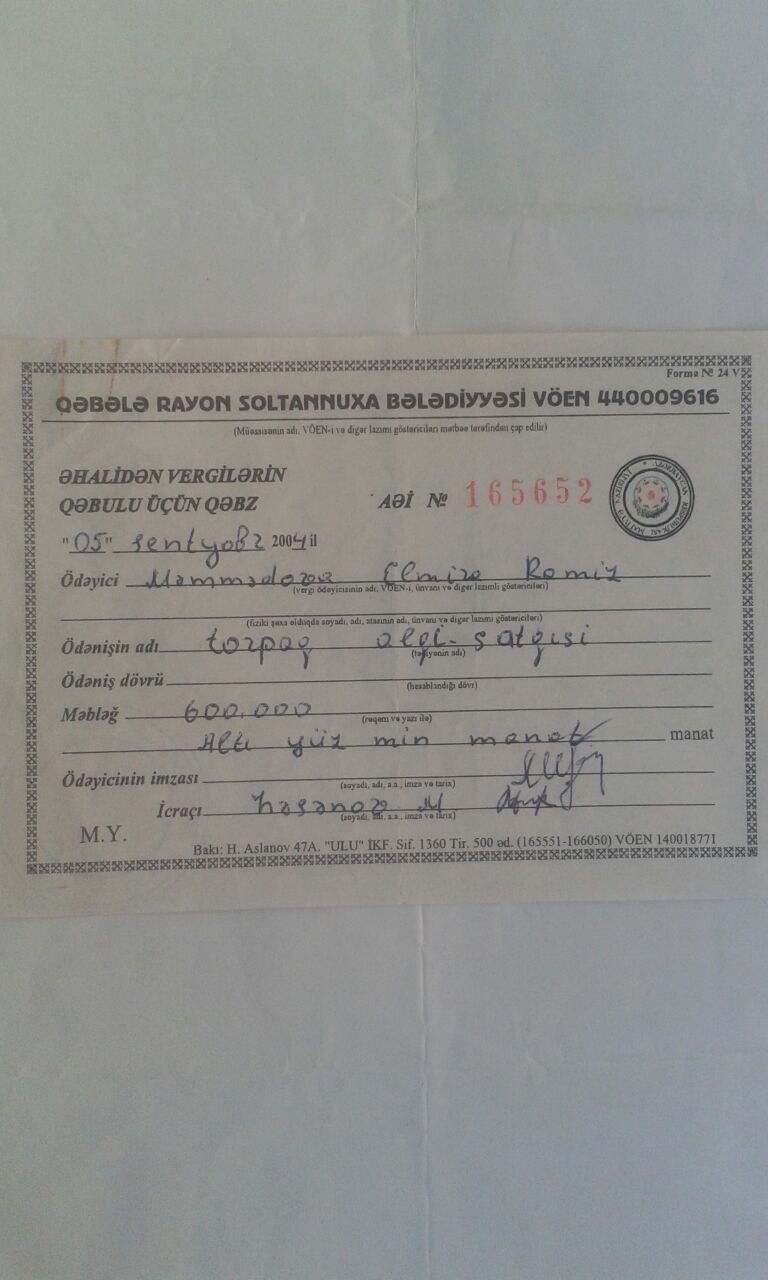 Forma № 24 V
QƏBƏLƏ RAYON SOLTANNUXA BƏLƏDİYYƏSİ VÖEN 440009616
(Müəssisənin adı, VÖEN-i və digər lazımi göstəriciləri mətbəə tərəfindən çap edilir)
ƏHALİDƏN VERGİLƏRİN
QƏBULU ÜÇÜN QƏBZ
AƏİ № 165652
"05" sentyabr 2004 il
Ödəyici Məmmədova Elmira Ramiz
(vergi ödəyicisinin adı, VÖEN-i, ünvanı və digər lazımli göstəriciləri)
(fiziki şəxs olduqda soyadı, adı, atasının adı, ünvanı və digər lazımi göstəriciləri)
Ödənişin adı torpaq alqi-satqısi
(tədiyənin adı)
Ödəniş dövrü
(hesablandığı dövr)
Məbləğ 600.000
(rəqəm və yazı ilə)
Altı yüz min manat manat
Ödəyicinin imzası
(soyadı, adı, a.a., imza və tarix)
İcraçı həsənov M
(soyadı, adı, a.a., imza və tarix)
M.Y.
Bakı: H. Aslanov 47A. "ULU" İKF. Sif. 1360 Tir. 500 əd. (165551-166050) VÖEN 140018771